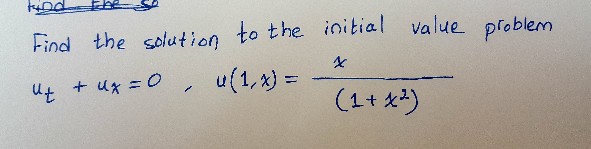 Find the so
Find the solution to the initial value problem
u_t + u_x = 0 , u(1,x) = x / (1+x²)